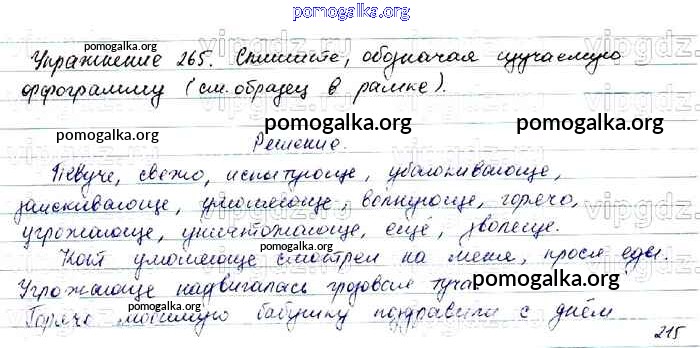 pomogalka.org
Упражнение 265. Спишите, обозначая изучаемую
орфограмму (см. образец в рамке).
Решение.
Певуче, свежо, испытующе, убаюкивающе,
заискивающе, умоляюще, волнующе, горячо,
угрожающе, уничтожающе, ещё, зловеще.
Кот умоляюще смотрел на меня, прося еды.
Угрожающе надвигалась грозовая туча
Горячо любимую бабушку поздравили с днём
215
pomogalka.org
pomogalka.org
pomogalka.org
pomogalka.org
pomogalka.org
pomogalka.org
pomogalka.org
pomogalka.org
vipgdz.ru